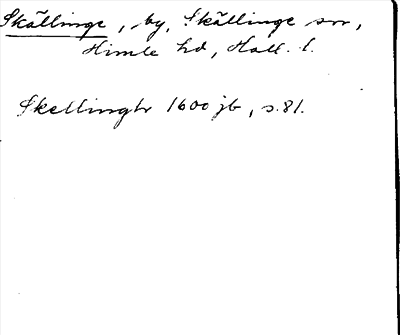 Skällinge, by, Skällinge sn,
Himle hd, Hall. l.
Skellingh 1600 jb, s. 81.